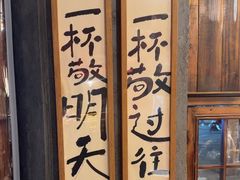 一杯敬过往
一杯敬明天